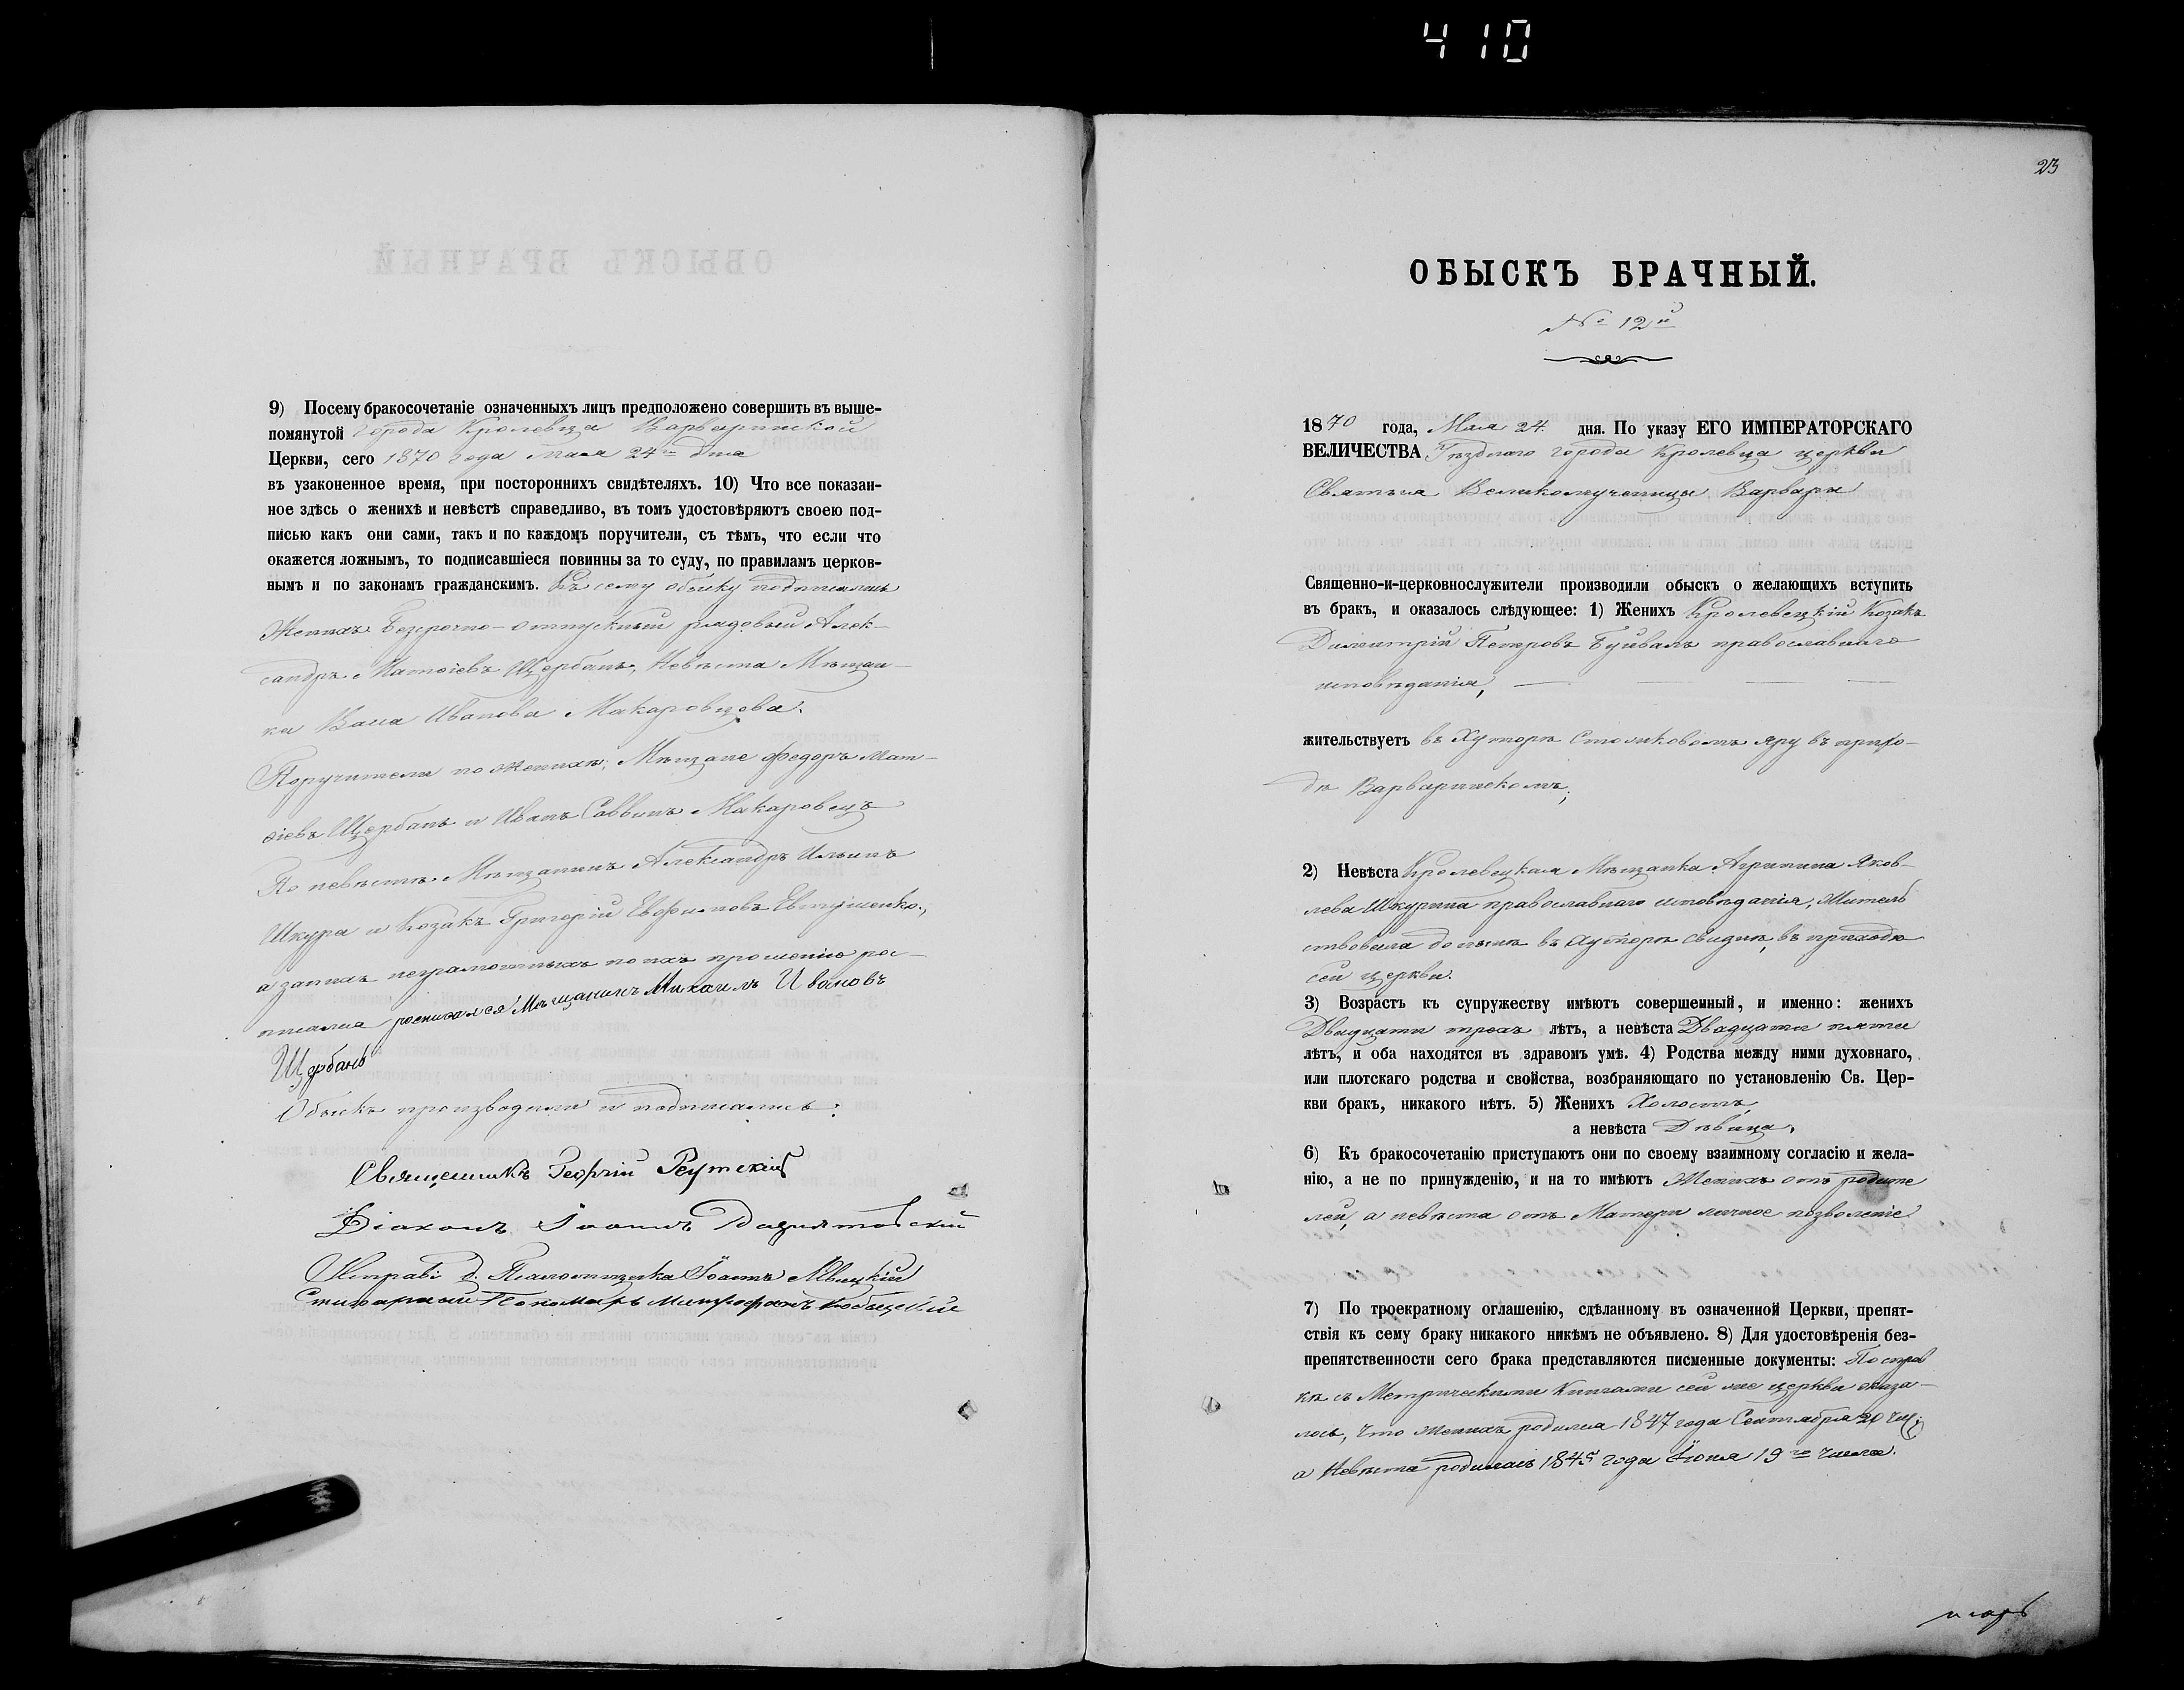 410
9) Посему бракосочетаніе означенныхъ лицъ предположено совершить въ выше-
помянутой города Кролевца Варваринской
Церкви, сего 1870 года мая 24го дня
въ узаконенное время, при постороннихъ свидѣтеляхъ. 10) Что все показан-
ное здѣсь о женихѣ и невѣстѣ справедливо, въ томъ удостовѣряютъ своею под-
писью какъ они сами, такъ и по каждомъ поручители, съ тѣмъ, что если что
окажется ложнымъ, то подписавшіеся повинны за то суду, по правиламъ церков-
нымъ и по законамъ гражданскимъ. Къ сему обыску подписались
Женихъ безсрочно-отпускный рядовый Алек-
сандръ Матѳіевъ Щербань, Невѣста Мѣщан-
ка Ивановa Макаровцева.
Поручители по женихѣ: Мѣщане Федоръ Мат-
ѳіевъ Щербань и Иванъ Саввинъ Макаровецъ
По невѣстѣ Мѣщанинъ Александръ Ильинъ
Шкура и Козакъ Григорій Евфимовъ Евтушенко,
а за нихъ неграмотныхъ по ихъ прошенію рос-
писался росписался Мѣщанинъ Михаилъ Ивановъ
Щербань
Обыскъ производили и подписались:
Священникъ Георгій Реутскій
Діаконъ Іоаннъ
Исправ. д. Псаломщика Іоаннъ
Стихарный Пономарь Митрофанъ
23
ОБЫСКЪ БРАЧНЫЙ.
№ 12й
1870 года, Мая 24 дня. По указу ЕГО ИМПЕРАТОРСКАГО
ВЕЛИЧЕСТВА Уѣзднаго города Кролевца церкви
Святыя Великомученицы Варвары
Священно-и-церковнослужители производили обыскъ о желающихъ вступить
въ бракъ, и оказалось слѣдующее: 1) Женихъ Кролевецкій Козакъ
Димитрій Петровъ Буйвалъ православнаго
исповѣданія,
жительствуетъ въ Хуторѣ Яру въ прихо-
дѣ Варваринскомъ;
2) Невѣста Кролевецкая Мѣщанка Агрипина Яков-
лева Шкурина православнаго исповѣданія, Житель
ствовала до нынѣ въ Хуторѣ въ приходѣ
сей церкви.
3) Возрастъ къ супружеству имѣютъ совершенный, и именно: женихъ
Двадцати трехъ лѣтъ, а невѣста Двадцати пяти
лѣтъ, и оба находятся въ здравомъ умѣ. 4) Родства между ними духовнаго,
или плотскаго родства и свойства, возбраняющаго по установленію Св. Цер-
кви бракъ, никакого нѣтъ. 5) Женихъ Холостъ,
а невѣста Дѣвица,
6) Къ бракосочетанію приступаютъ они по своему взаимному согласію и жела-
нію, а не по принужденію, и на то имѣютъ Женихъ отъ родите
лей, а невѣста отъ Матери личное позволеніе
7) По троекратному оглашенію, сдѣланному въ означенной Церкви, препят-
ствія къ сему браку никакого никѣмъ не объявлено. 8) Для удостовѣренія без-
препятственности сего брака представляются писменные документы: По справ
кѣ съ Метрическими Книгами сей же церкви оказа-
лось, что женихъ родился 1847 года Сентября 20 чис.
а Невѣста родилась 1845 года Іюня 19го числа.